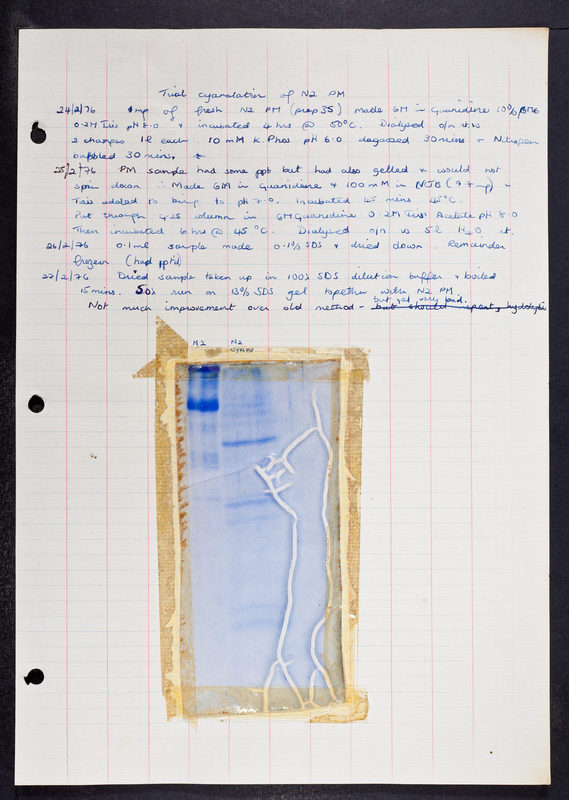 Trial cyanolation of N2 PM
24/2/76 1mg of fresh N2 PM (prep 35) made 6M in Guanidine 10% βME
0.2M Tris pH 8.0 & incubated 4 hrs @ 50°C. Dialysed o/n vs
2 changes 1l each 10 mM K. Phos pH 6.0 degassed 30 mins + Nitrogen
bubbled 30 mins.
25/2/76 PM sample had some ppt but had also gelled & would not
spin down ∴ Made 6M in Guanidine & 100 mM in (9.8mg) +
Tris added to bring to pH 7.0. Incubated 45 mins 45°C.
Put through G25 column in 6M Guanidine 0.2M Tris Acetate pH 8.0
Then incubated 6 hrs @ 45°C. Dialysed o/n vs 5l H2O rt.
26/2/76 0.1ml sample made 0.1% SDS & dried down. Remainder
frozen (had pptd)
27/2/76 Dried sample taken up in 100λ SDS dilution buffer & boiled
15 mins. 50λ run on 13% SDS gel together with N2 PM.
but gel very bad.
Not much improvement over old method - but should repeat,
N2 N2